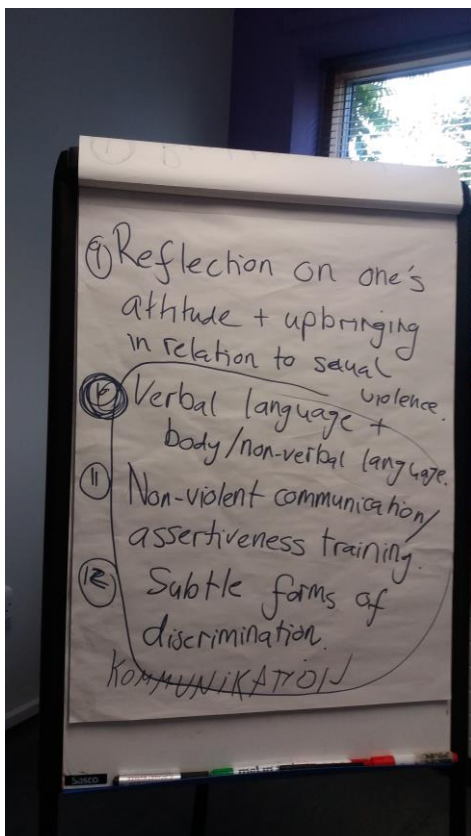 ⑨ Reflection on one's
attitude + upbringing
in relation to sexual
violence.
⑩ Verbal language +
body/non-verbal language.
⑪ Non-violent communication/
assertiveness training.
⑫ Subtle forms of
discrimination.
KOMMUNIKATION
Sasco